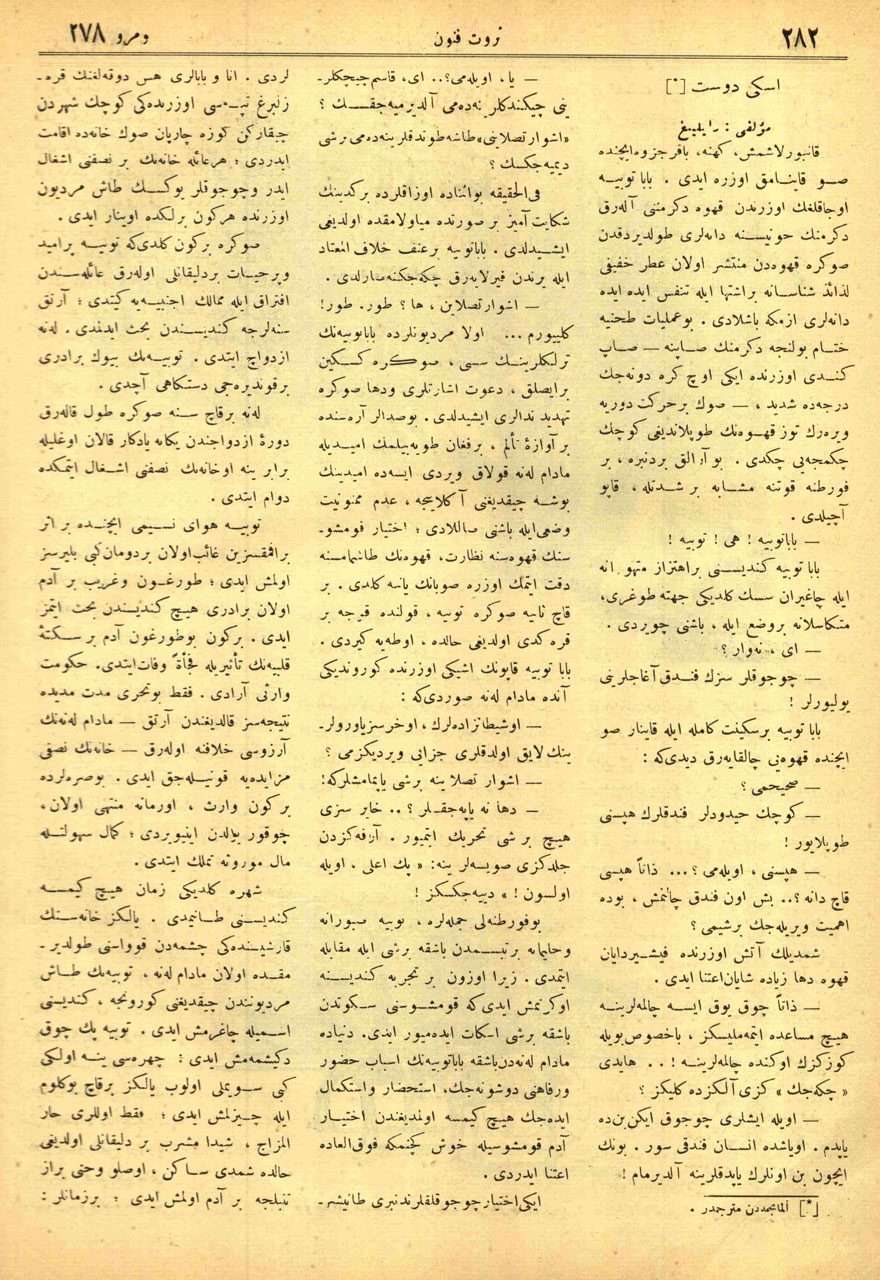 ٢٨٢
ثروت فنون
ومرو ٢٧٨
اسكی دوست [*]
مؤلفی : رایلیبغ
قانبورلاشمش، كهنه، باقر جزوه ایچنده
صو قاینامق اوزره ایدی . بابا توبیه
اوجاقلغك اوزرندن قهوه دكرمننی آله‌رق
دكرمنك حونیسنه دانه‌لری طولدیردقدن
صوكره قهوه‌دن منتشر اولان عطر خفیفی
لذائذ شناسانه براشتها ایله تنفس ایده ایده
دانه‌لری ازمكه باشلادی . بوعملیات طحنیه
ختام بولنجه دكرمنك صاپنه — صاپ
كندی اوزرنده ایكی اوچ كره دونه‌جك
درجه‌ده شدید ، — صوك برحركت دوریه
ویره‌رك توز قهوه‌نك طوپلاندیغی كوچك
چكمجه‌یی چكدی . بو آرالق بردنبره ، بر
فورطنه قوتنه مشابه بر شدتله ، قاپو
آچیلدی .
— باباتوبیه ! هی ! توبیه !
بابا توبیه كندیسنی براهتزاز متهورانه
ایله چاغیران سسك كلدیكی جهته طوغری،
متكاسلانه بروضع ایله ، باشنی چویردی .
— ای ، نه‌وار ؟
— چوجوقلر سزك فندق آغاجلرینی
یولیورلر !
بابا توبیه برسكینت كامله ایله قاینار صو
ایچنده قهوه‌یی چالقایه‌رق دیدی‌كه :
— صحیحمی ؟
— كوچك حیدودلر فندقلرك هپسنی
طوپلایور !
— هپسنی ، اویله‌می ؟... ذاتاً هپسی
قاچ دانه ؟.. بش اون فندق چالنمش ، بوده
اهمیت ویریله‌جك برشیمی ؟
شمدیلك آتش اوزرنده فیشیردایان
قهوه دها زیاده شایان‌اعتنا ایدی .
— ذاتاً چوق یوق ایسه چالمه‌لرینه
هیچ مساعده ایتمه‌ملیسكز ، باخصوص‌بویله
كوزكزك اوكنده چالمه‌لرینه ! .. هایدی
« چكه‌جك » كزی آلكزده كلیكز ؟
— اویله ایشلری چوجوق ایكن‌بن‌ده
یاپدم . اویاشده انسان فندقی سور . بونك
ایچون بن اونلرك یاپدقلرینه آلدیرمام !
[*] آلمانجه‌دن مترجمدر .
— یا ، اویله‌می؟.. ای، قاسم‌چیچكلر-
ینی چیكندكلرینه‌ده‌می آلدیرمیه‌جقسك ؟
«اشوارتصلاینی» طاشه‌طوندقلرینه‌ده‌می برشی
دیمیه‌جكسك ؟
فی‌الحقیقه بوائناده اوزاقلرده بركدینك
شكایت‌آمیز بر صورتده میاولامقده اولدیغی
ایشیدلدی . باباتوبیه برعنف خلاف‌المعتاد
ایله یرندن فیرلایه‌رق چكه‌جكنه‌صارلدی .
— اشوارتصلاین ، ها ؟ طور. طور!
كلییورم ... اولا مردیونلرده باباتوبیه‌نك
ترلكلرینك سسی ، صوكره كسكین
برایصلق ، دعوت اشارتلری ودها صوكره
تهدید ندالری ایشیدلدی . بوصدالر آره‌سنده
بر آوازهٔ تألم ، برفغان طویه‌بیلمك امیدیله
مادام له‌نه قولاق ویردی ایسه‌ده امیدینك
بوشه چیقدیغنی آكلاینجه ، عدم ممنونیت
وضعی‌ایله باشنی صاللادی ؛ اختیار قومشو-
سنك قهوه‌سنه نظارت، قهوه‌نك طاشمامسنه
دقت ایتمك اوزره صوبانك یاننه كلدی . بر
قاچ ثانیه صوكره توبیه ، قولنده قیرجه بر
قره كدی اولدیغی حالده ، اوطه‌یه كیردی .
بابا توبیه قاپونك اشیكی اوزرنده كوروندیكی
آنده مادام له‌نه صوردی‌كه :
— اوشیطانزاده‌لرك ، اوخرسزیاورولر-
ینك‌لایق اولدقلری جزایی ویردیكزمی ؟
— اشوار تصلاینه برشی یاپمامشلركه!
— دها نه یاپه‌جقلر ؟ .. خایر سزی
هیچ بر شی تحریك ایتمیور . آرقه‌كزدن
جلدكزی صویسه‌لر ینه: « پك اعلی ، اویله
اولسون ! » دییه‌جكسكز !
بوفورطنه‌لی جمله‌لره ، توبیه صبورانه
وحلیمانه برتبسمدن باشقه برشی ایله مقابله
ایتمدی . زیرا اوزون بر تجربه كندیسنه
اوكرتمش ایدی‌كه قومشوسنی سكوتدن
باشقه برشی اسكات ایده‌میور ایدی. دنیاده
مادام له‌نه‌دن‌باشقه باباتوبیه‌نك اسباب حضور
ورفاهنی دوشونه‌جك، استحضار واستكمال
ایده‌جك هیچ كیمسه اولمدیغندن اختیار
آدم قومشوسیله خوش كچنمكه فوق‌العاده
اعتنا ایدردی .
ایكی‌اختیار چوجوقلقلرندنبری طانیشر-
لردی . انا و بابالری هس دوقه‌لغنك قره‌-
زلنبرغ تپه‌سی اوزرنده‌كی كوچك شهردن
چیقاركن كوزه چارپان صوك خانه‌ده اقامت
ایدردی ؛ هرعائله خانه‌نك بر نصفنی اشغال
ایدر وچوجوقلر یوكسك طاش مردیون
اوزرنده هركون برلكده اوینار ایدی .
صوكره بركون كلدی‌كه توبیه پرامید
وپرحیات بردلیقانلی اوله‌رق عائله‌سندن
افتراق ایله ممالك اجنبیه‌یه كیتدی ؛ آرتق
سنه‌لرجه كندیسندن بحث ایدلمدی . له‌نه
ازدواج ایتدی . توبیه‌نك بیوك برادری
برقوندیره‌جی دستكاهی آچدی .
له‌نه برقاچ سنه صوكره طول قاله‌رق
دورهٔ ازدواجندن یكانه یادكار قالان اوغلیله
برابر ینه اوخانه‌نك نصفنی اشغال ایتمكده
دوام ایتدی .
توبیه هوای نسیمی ایچنده بر اثر
براقمقسزین غائب‌اولان بردومان‌كبی بلیرسز
اولمش ایدی ؛ طورغون وغریب بر آدم
اولان برادری هیچ كندیسندن بحث ایتمز
ایدی . بركون بوطورغون آدم بر سكتهٔ
قلبیه‌نك تأثیریله فجأةً وفات‌ایتدی. حكومت
وارثی آرادی . فقط بوتحری مدت مدیده
نتیجه‌سز قالدیغندن آرتق — مادام له‌نه‌نك
آرزوسی خلافنه اوله‌رق — خانه‌نك نصفی
مزایده‌یه قونیله‌جق ایدی . بوصره‌لرده
بركون وارث ، اورمانه منتهی اولان،
چوقور یولدن اینیویردی ؛ كمال سهولتله
مال موروثه تملك ایتدی .
شهره كلدیكی زمان هیچ كیمسه
كندیسنی طانیمدی . یالكز خانه‌سنك
قارشیسنده‌كی چشمه‌دن قوواسنی طولدیر-
مقده اولان مادام له‌نه ، توبیه‌نك طاش
مردیوندن چیقدیغنی كورونجه ، كندیسنی
اسمیله چاغرمش ایدی . توبیه پك چوق
دكیشمه‌مش ایدی : چهره‌سی ینه اولكی
كبی سویملی اولوب یالكز برقاچ بوكلوم
ایله چیزلمش ایدی ؛ فقط اوللری حار
المزاج ، شیدا مشرب بر دلیقانلی اولدیغی
حالده شمدی ساكن ، اوصلو وحتی براز
تنبلجه بر آدم اولمش ایدی ؛ برزمانلر :